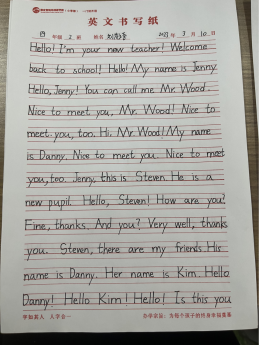 英文书写纸
四 年级 2 班 姓名 2023 年 3 月 10 日
Hello! I'm your new teacher! Welcome
back to school! Hello! My name is Jenny
Hello, Jenny! You can call me Mr. Wood.
Nice to meet you, Mr. Wood! Nice to
meet you, too. Hi. Mr. Wood! My name
is Danny. Nice to meet you. Nice to meet
you, too. Jenny, this is Steven. He is a
new pupil. Hello, Steven! How are you?
Fine, thanks. And you? Very well, thank
you. Steven, there are my friends. His
name is Danny. Her name is Kim. Hello
Danny! Hello Kim! Hello! Is this you
字如其人 人字合一
办学宗旨：为每个孩子的终身幸福奠基